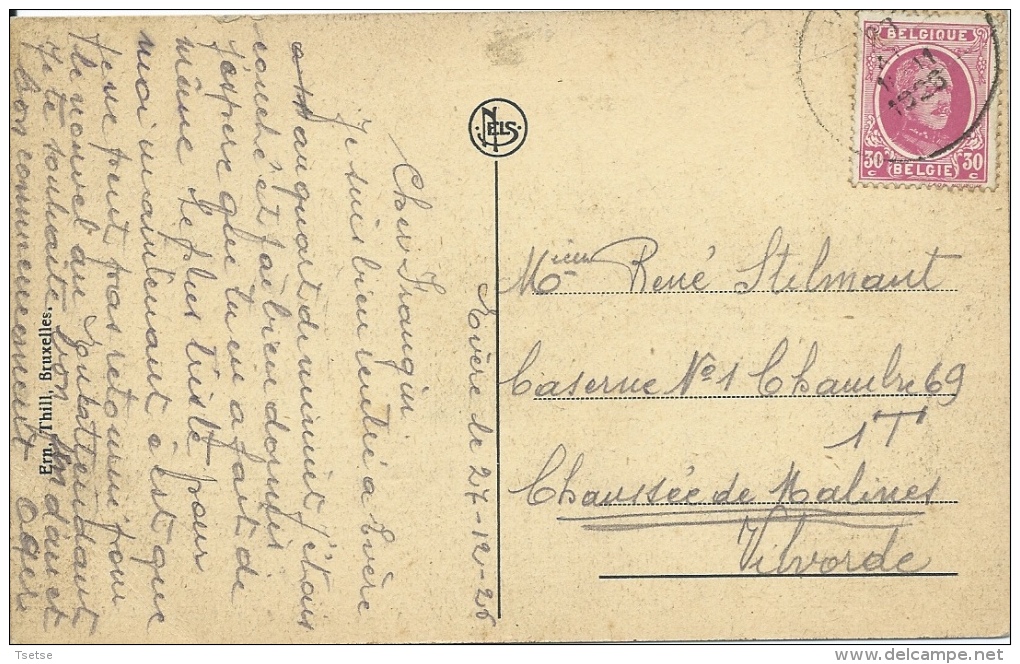 Evère le 27-12-26
Cher Frangin
Je suis bien rentré a Evère
au quart de minuit j'étais
couché et j'ai bien dormis
J'espère que tu en a fait de
même le plus triste pour
moi maintenant c'est que
je ne peut pas retourné pour
le nouvel an En attendant
Je te souhaite bon et
bon commencement
Ern. Thill, Bruxelles.
NELS
BELGIQUE
1926
30 c
30 c
BELGIE
Mrieur René Stelmant
Caserne No 1 Chambre 69
1T
Chaussée de Malines
Vilvorde
Tsetse
www.delcampe.net